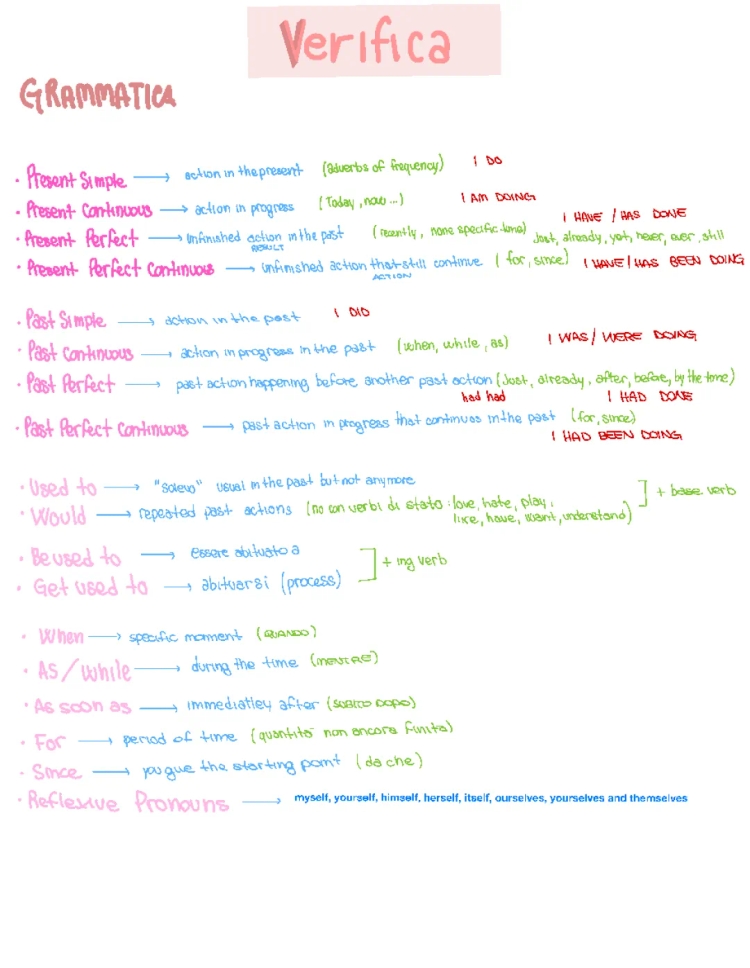 Verifica
GRAMMATICA
· Present Simple → action in the present (adverbs of frequency) I DO
· Present Continuous → action in progress (Today, now ...) I AM DOING
I HAVE / HAS DONE
· Present Perfect → Unfinished action in the past (recently, none specific time) Just, already, yet, never, ever, still
RESULT
· Present Perfect Continuous → Unfinished action that still continue (for, since) I HAVE / HAS BEEN DOING
ACTION
· Past Simple → action in the past I DID
· Past Continuous → action in progress in the past (when, while, as) I WAS / WERE DOING
· Past Perfect → past action happening before another past action (Just, already, after, before, by the time)
had had I HAD DONE
· Past Perfect Continuous → past action in progress that continues in the past (for, since)
I HAD BEEN DOING
· Used to → "solevo" usual in the past but not anymore
] + base verb
· Would → repeated past actions (no con verbi di stato: love, hate, play,
like, have, want, understand)
· Be used to → essere abituato a
] + ing verb
· Get used to → abituarsi (process)
· When → specific moment (QUANDO)
· As / While → during the time (MENTRE)
· As soon as → immediatley after (SUBITO DOPO)
· For → period of time (quantità non ancora finita)
· Since → you gue the starting point (da che)
· Reflexive Pronouns → myself, yourself, himself, herself, itself, ourselves, yourselves and themselves